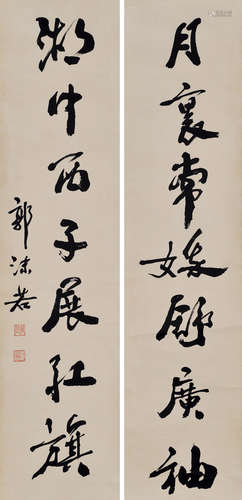 月裏常娥舒廣袖
湖中西子展紅旗
郭沫若